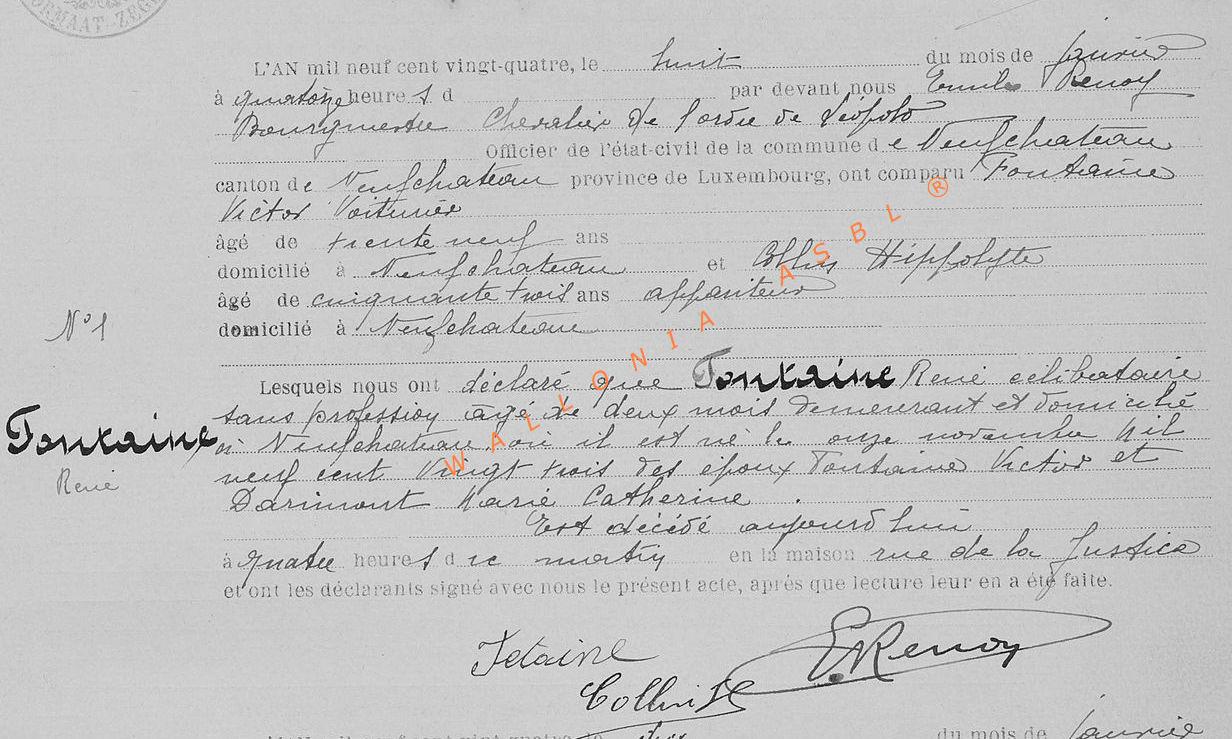 L'AN mil neuf cent vingt-quatre, le huit du mois de janvier
à quatorze heures d par devant nous Emile Renoy
Bourgmestre Chevalier de l'ordre de Léopold
Officier de l'état-civil de la commune de Neufchateau
canton de Neufchateau province de Luxembourg, ont comparu Fontaine
Victor Voiturier
âgé de trente neuf ans
domicilié à Neufchateau et Collin Hippolyte
âgé de cinquante trois ans appariteur
domicilié à Neufchateau
N° 1
Lesquels nous ont déclaré que Fontaine René célibataire
sans profession âgé de deux mois demeurant et domicilié
Fontaine
à Neufchateau, où il est né le onze novembre Mil
neuf cent vingt trois des époux Fontaine Victor et
René
Darimont Marie Catherine.
Est décédé aujourd'hui
à quatre heures du matin en la maison rue de la Justice
et ont les déclarants signé avec nous le présent acte, après que lecture leur en a été faite.
E. Renoy
Collin H
du mois de janvier
WALLONIA ASBL ®